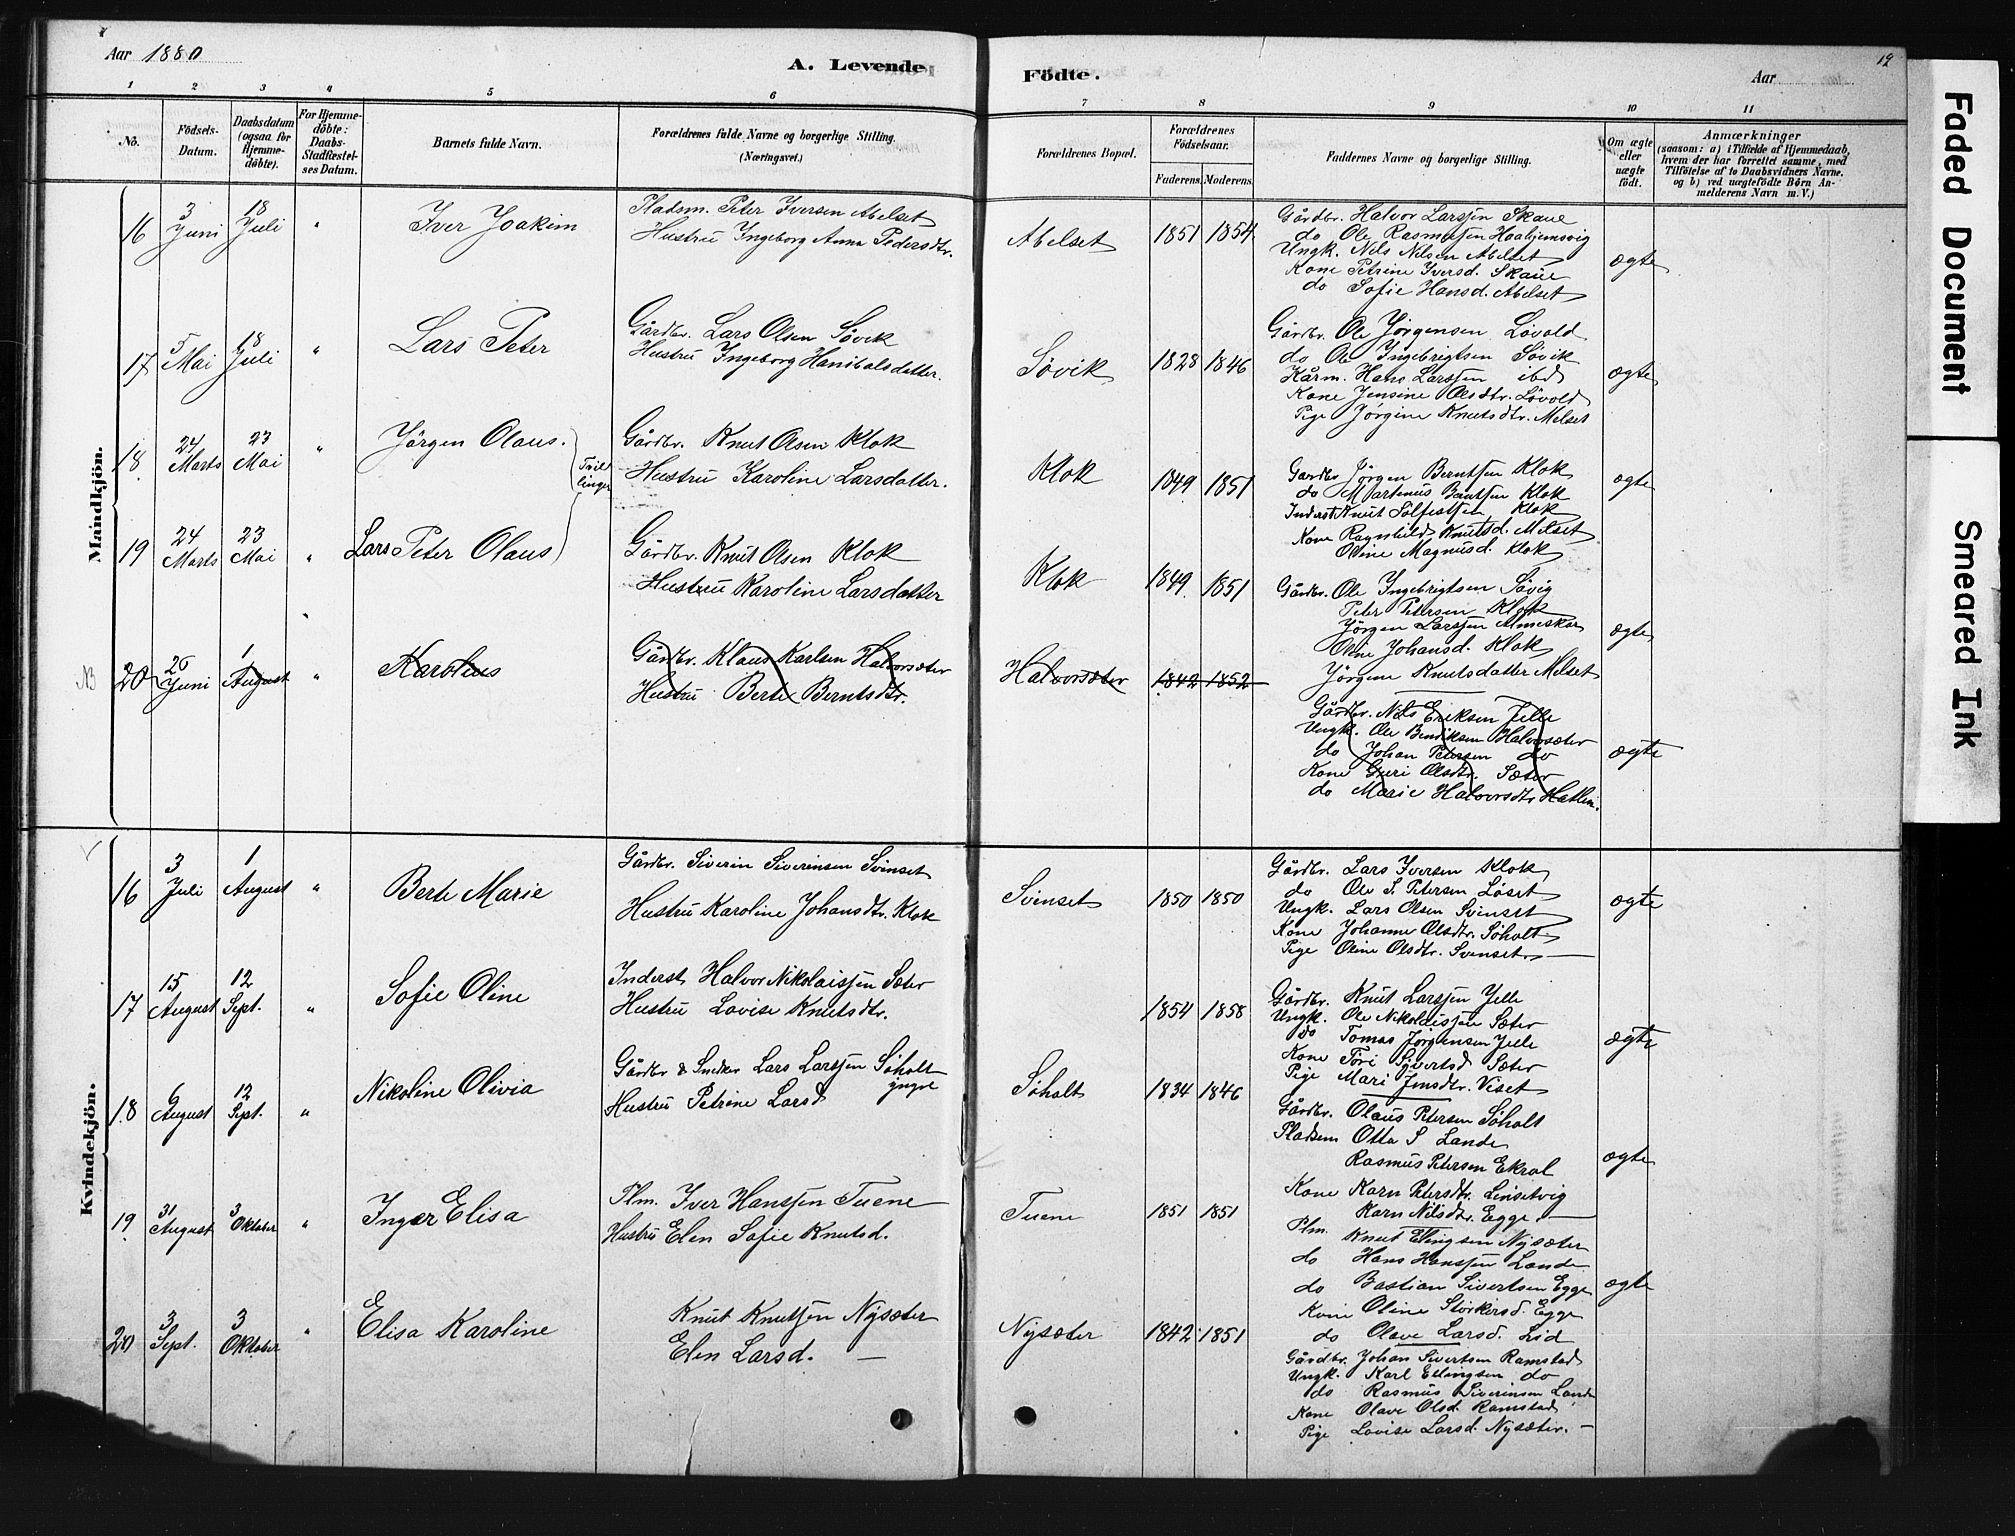 Aar 1880
A. Levende
Födte.
Aar
19
1 2 3 4 5 6 7 8 9 10 11
No.
Födsels-
Datum.
Daabsdatum
(ogsaa for
Hjemme-
döbte).
For Hjemme-
döbte:
Daabs-
Stadfæstel-
ses Datum.
Barnets fulde Navn.
Forældrenes fulde Navne og borgerlige Stilling.
(Næringsvei.)
Forældrenes Bopæl.
Forældrenes
Födselsaar.
Faderens. Moderens.
Faddernes Navne og borgerlige Stilling.
Om ægte
eller
uægte
födt.
Anmærkninger
(saasom: a) i Tilfælde af Hjemmedaab,
hvem der har forrettet samme, med
Tilföielse af to Daabsvidners Navne,
og b) ved uægtefödte Börn An-
melderens Navn m. V.)
Mandkjön.
16
3
Juni
18
Juli
"
Iver Joakim
Pladsm. Peter Iversen Abelset
Hustru Ingeborg Anna Pedersdtr.
Abelset
1851 1854
Gårdbr. Halvor Larssen Skaue
do Ole Rasmussen Haahjemsvig
Ungk. Nils Nilsen Abelset
Kone Petrine Iversd. Skaue
do Sofie Hansd. Abelset
ægte
17
5
Mai
18
Juli
"
Lars Peter
Gårdbr. Lars Olsen Søvik
Hustru Ingeborg Hansbalsdatter.
Søvik
1828 1846
Gårdbr. Ole Jørgensen Løvold
do Ole Ingebrigtsen Søvik
Kårm. Hans Larssen ibd
Kone Jensine Olsdtr. Løvold
Pige Jørgine Knutsdtr. Melset
ægte
18
24
Marts
23
Mai
"
Jørgen Olaus.
Tvil
linger
Gårdbr. Knut Olsen Klok
Hustru Karoline Larsdatter.
Klok
1849 1851
Gårdbr Jørgen Berntsen Klok
do Martinus Berntsen Klok
Inderst Knut Solfestsen Klok
Kone Ragnhild Knutsd. Melset
Oline Magnusd. Klok
ægte
19
24
Marts
23
Mai
"
Lars Peter Olaus
Gårdbr. Knut Olsen Klok
Hustru Karoline Larsdatter
Klok
1849 1851
Gårdbr. Ole Ingebrigtsen Søvig
Peter Petersen Klok
Jørgen Larssen Amseskar
Oline Johansd. Klok
Jørgine Knutsdatter Melset
ægte
NB
20
26
Juni
1
August
"
Karolus
Gårdbr. Klaus Karlsen Halvorsæter
Hustru Berte Berntsdtr.
Halvorsæter
1842 1852
Gårdbr. Nils Eriksen Jelle
Ungk. Ole Bendiksen Halvorsæter
do Johan Petersen do
Kone Guri Olsdtr. Sæter
do Marie Halvorsdtr Hatlen.
ægte
Kvindekjön.
16
3
Juli
1
August
"
Berte Marie
Gårdbr. Siverin Siverinsen Svinset
Hustru Karoline Johansdtr. Klok
Svinset
1850 1850
Gårdbr. Lars Iversen Klok
do Ole S. Petersen Løset
Ungk. Lars Olsen Svinset
Kone Johanne Olsdtr. Søholt
Pige Oline Olsdtr. Svinset
ægte
17
15
August
12
Sept.
"
Sofie Oline
Inderst Halvor Nikolaisen Sæter
Hustru Lovise Knutsdtr.
1854 1858
Gårdbr. Knut Larssen Jelle
Ungk. Ole Nikolaisen Sæter
do Tomas Jørgensen Jelle
Kone Tøri Syvertsd Sæter
Pige Mari Jensdtr. Viset
ægte
18
6
August
12
Sept.
"
Nikoline Olivia
Gårdbr & Snedker Lars Larssen Søholt
yngre
Hustru Petrine Larsd
Søholt
1834 1846
Gårdbr. Olaus Petersen Søholt
Pladsm Otta S Lande
Rasmus Petersen Ekrol
Kone Karn Petersdtr. Linsetvig
Karn Nilsdtr. Egge
ægte
19
31
August
3
Oktober
"
Inger Elisa
Plm. Iver Hanssen Tuene
Hustru Elen Sofie Knutsd.
Tuene
1851 1851
Plm. Knut Ellingsen Nysæter
do Hans Hanssen Lande
do Bastian Sivertsen Egge
Kone Oline Størkersd. Egge
do Olave Larsd. Lid
ægte
20
3
Sept.
3
Oktober
"
Elisa Karoline
Knut Knutsen Nysæter
Elen Larsd.
Nysæter
1842 1851
Gårdbr. Johan Sivertsen Ramstad
Ungk. Karl Ellingsen do
do Rasmus Siverinsen Lande
Kone Olave Olsd. Ramstad
Pige Lovise Larsd. Nysæter.
Faded Document
Smeared Ink